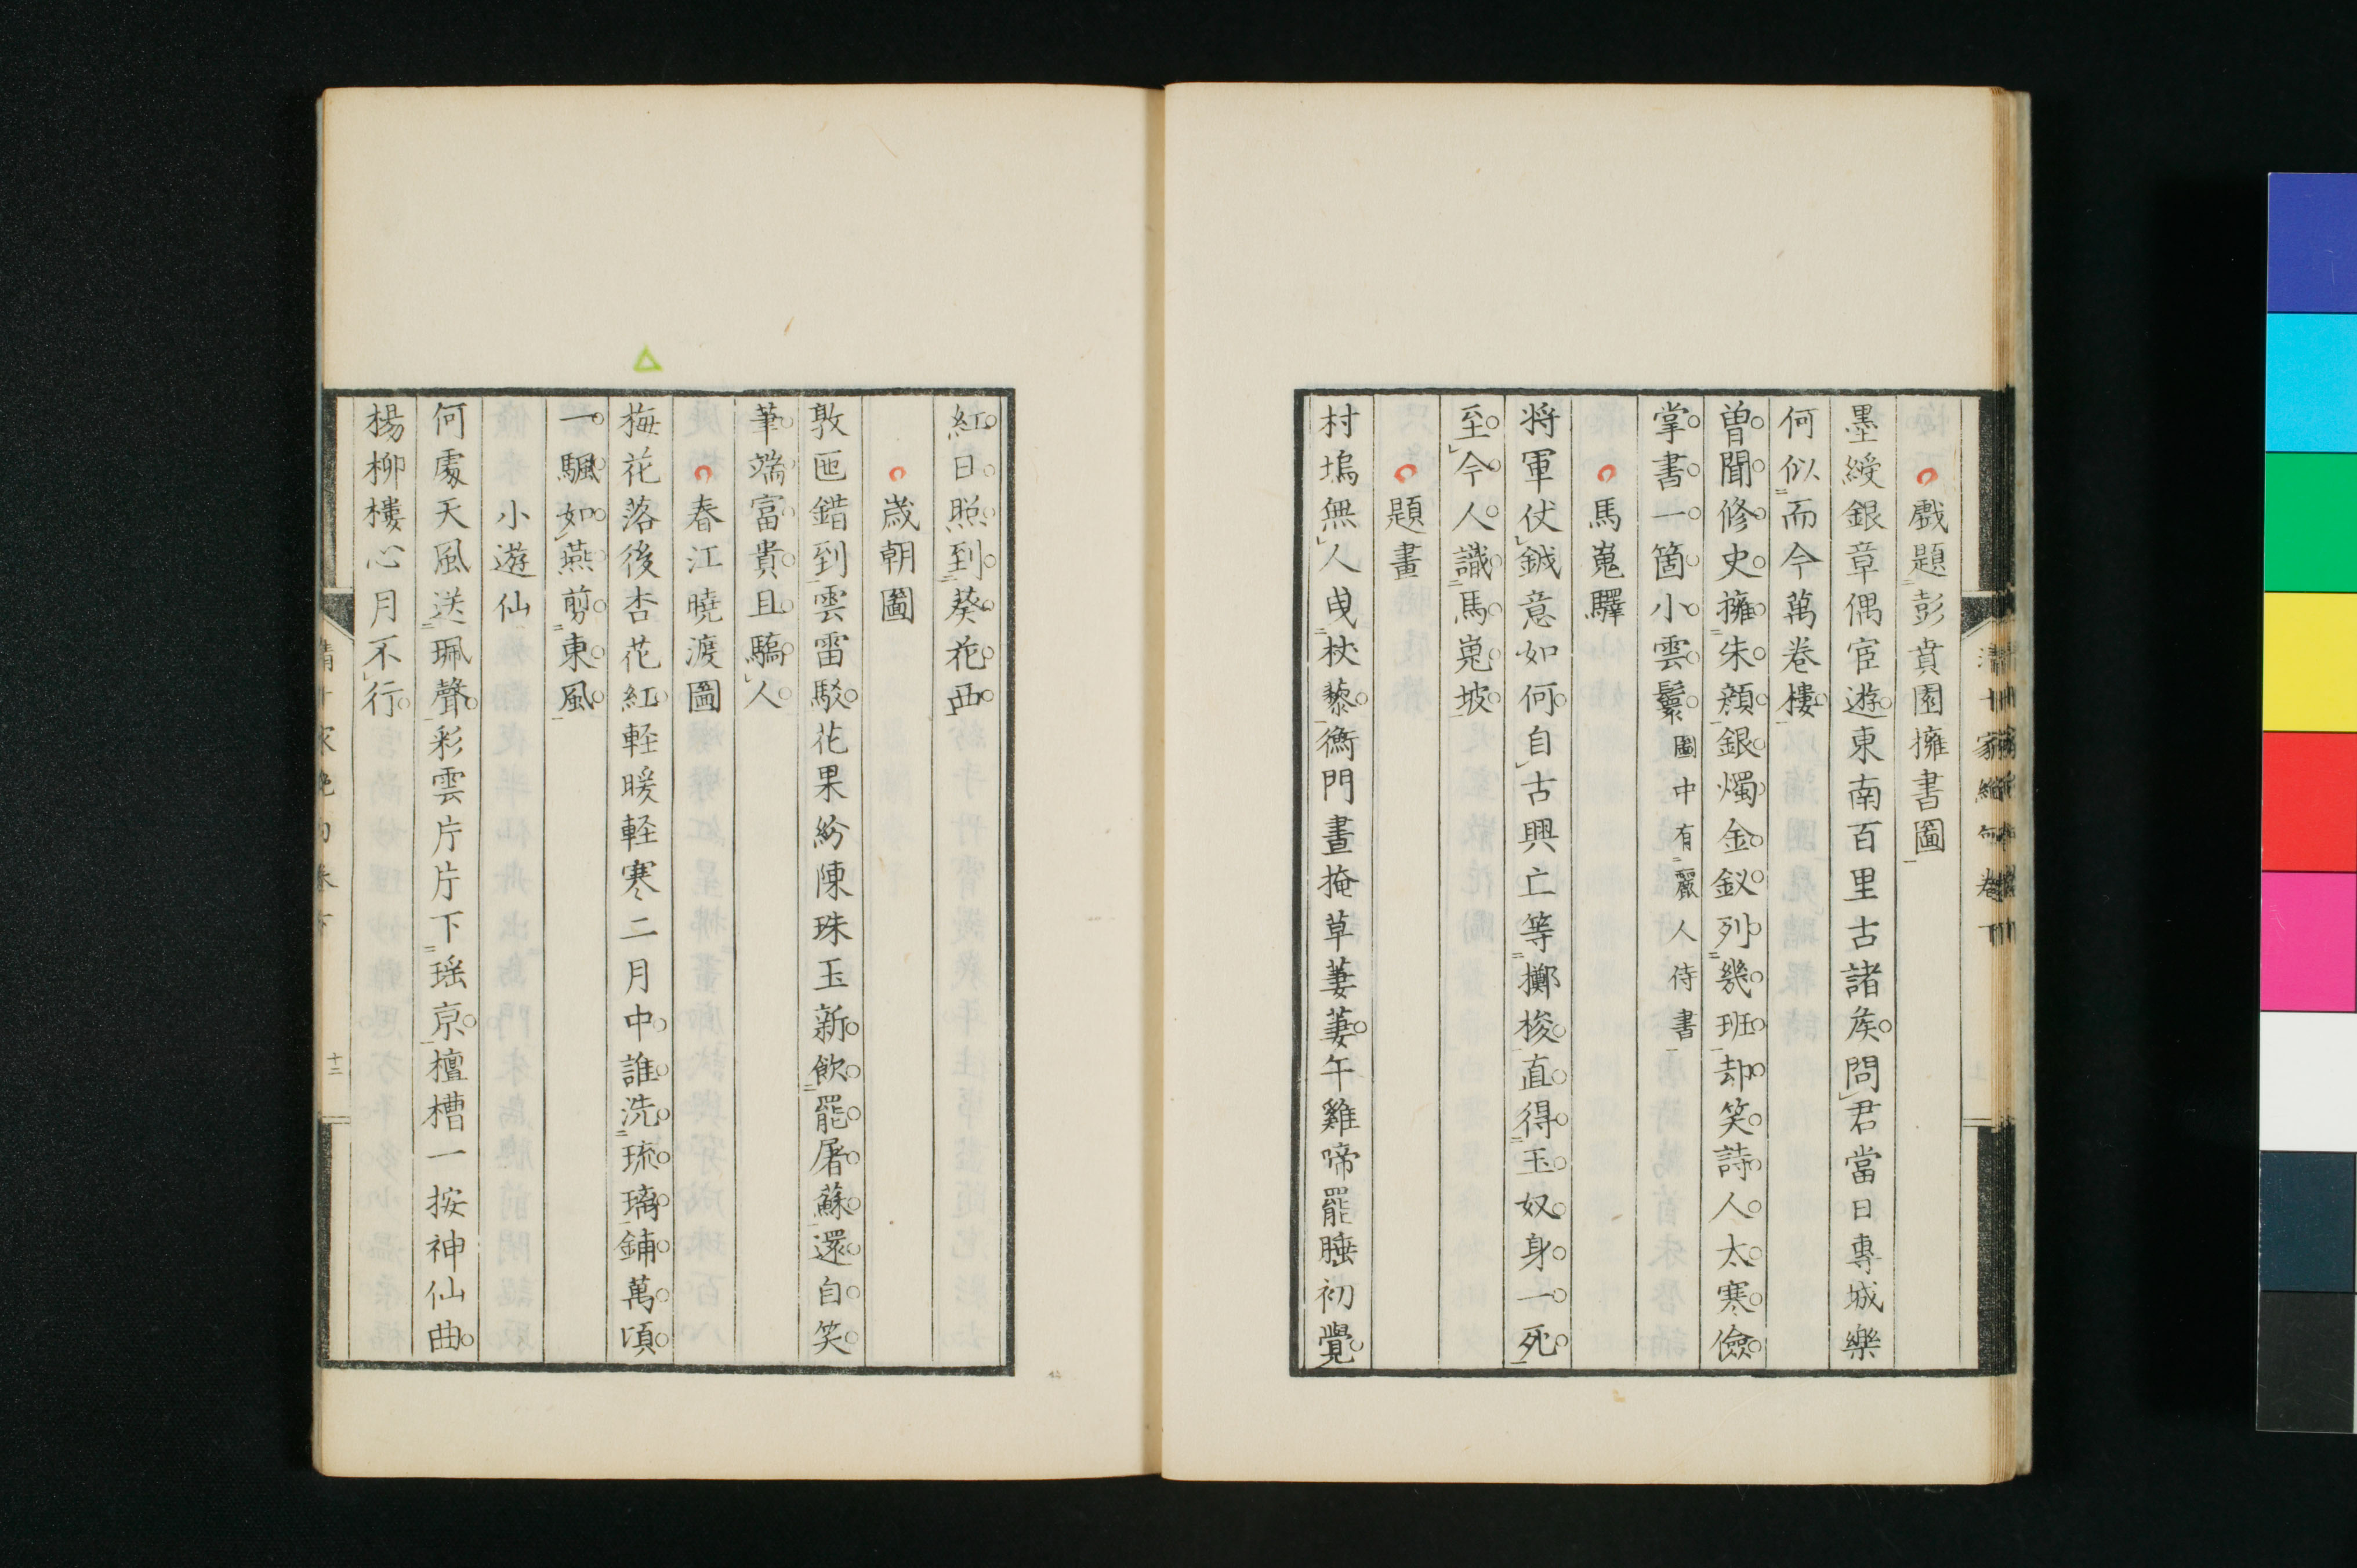 戲題彭賁園擁書圖
墨綬銀章偶宦遊東南百里古諸矦問君當日專城樂
何似而今萬卷樓
曽聞修史擁朱顔銀燭金釵列幾班却笑詩人太寒儉
掌書一箇小雲鬟圖中有麗人侍書
馬嵬驛
将軍仗鉞意如何自古興亡等擲梭直得玉奴身一死
至今人識馬嵬坡
題畫
村塢無人曳杖藜衡門晝掩草萋萋午雞啼罷睡初覺
清十家絶句卷下
紅日照到葵花西
歲朝圖
敦匜錯到雲雷駁花果紛陳珠玉新飲罷屠蘇還自笑
筆端富貴且驕人
春江曉渡圖
梅花落後杏花紅軽暖軽寒二月中誰洗琉璃鋪萬頃
一颿如燕剪東風
小遊仙
何處天風送珮聲彩雲片片下瑶京檀槽一按神仙曲
楊柳樓心月不行
清十家絶句卷下
十二